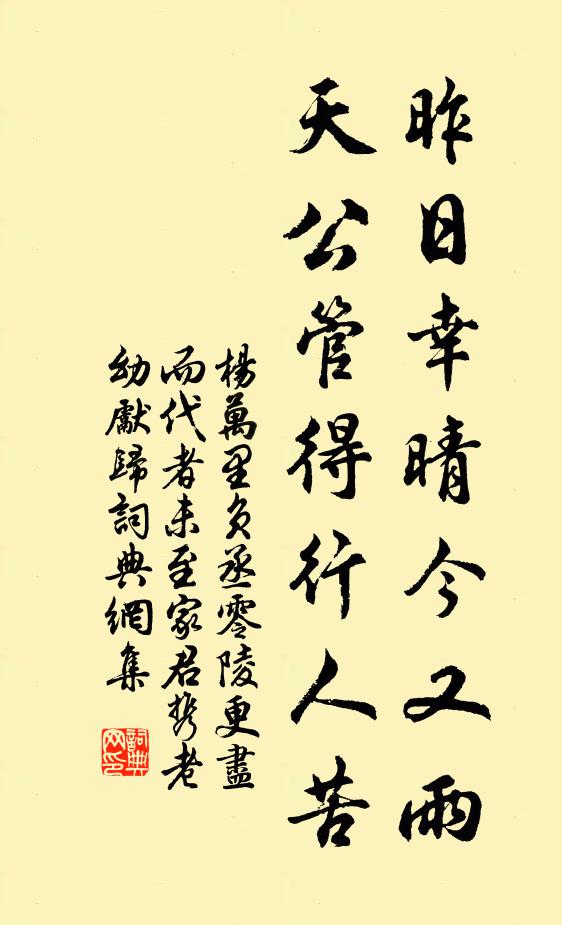 昨日幸晴今又雨
天公管得行人苦
楊萬里負丞零陵更盡
而代者未至家君攜老
幼獻歸詞典網集
詞典網印